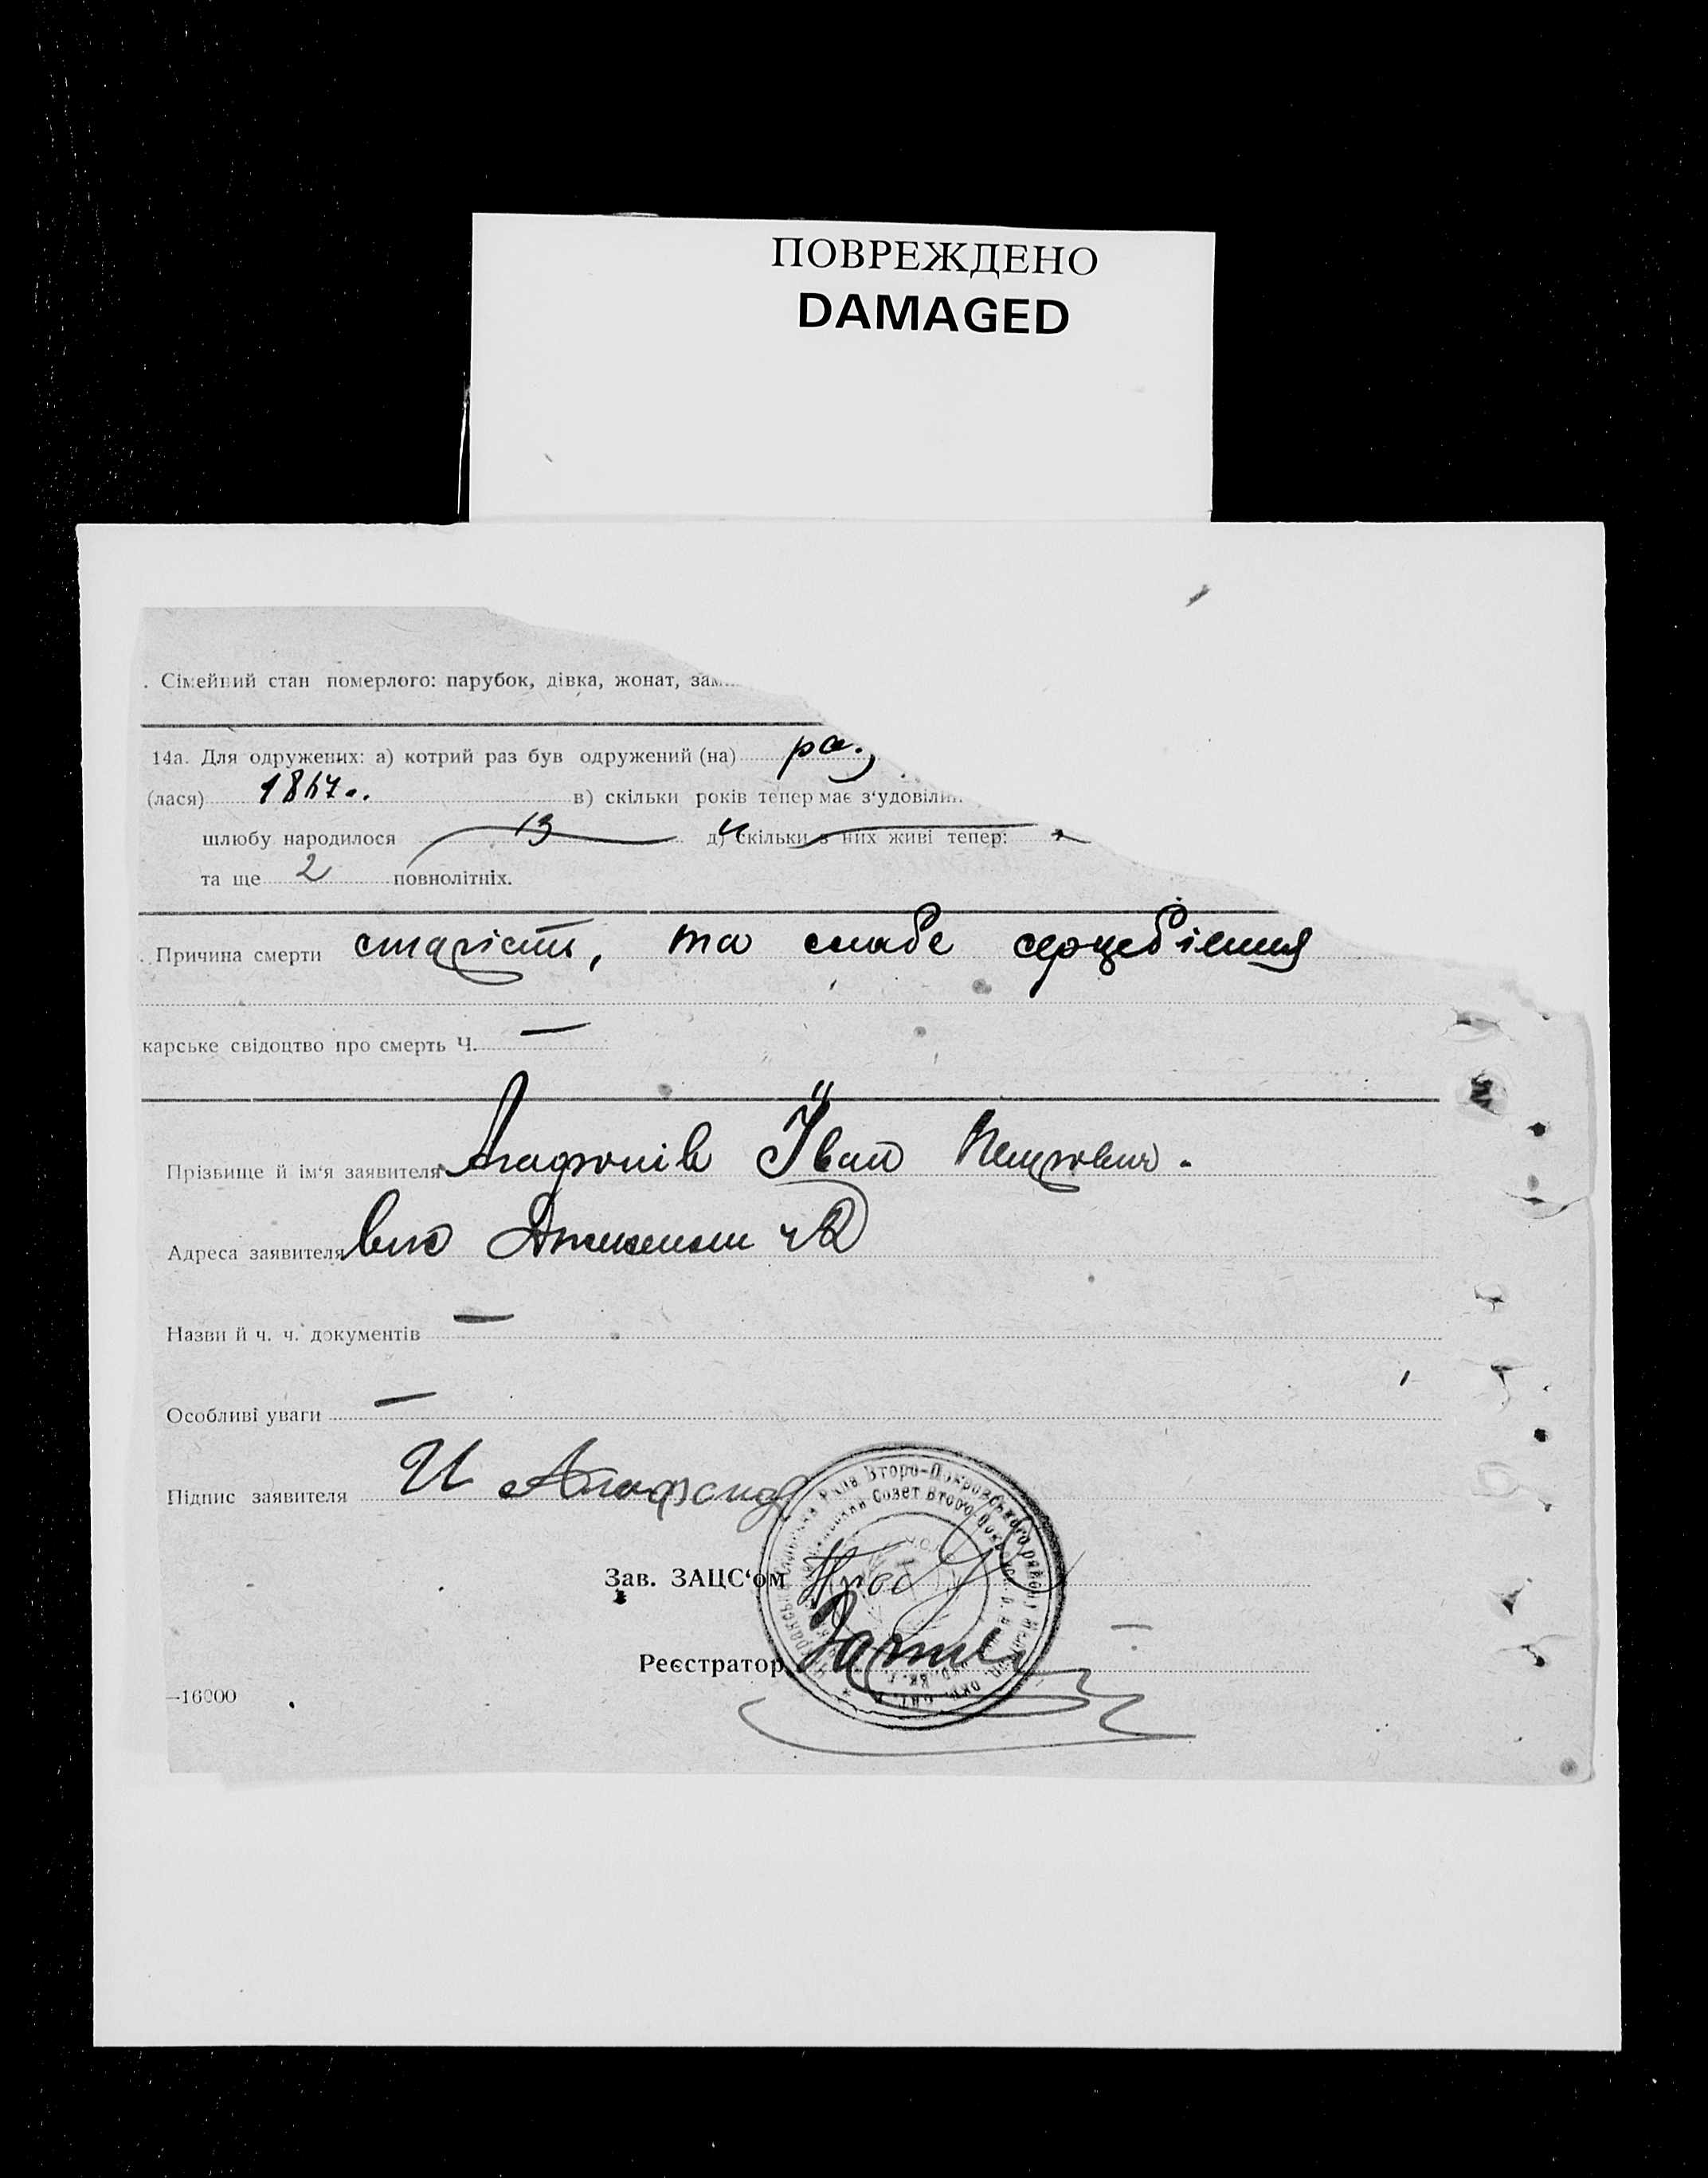 ПОВРЕЖДЕНО
DAMAGED
. Сімейний стан померлого: парубок, дівка, жонат, зам
14а. Для одружених: а) котрий раз був одружений (на) раз
(лася) 1867.. в) скільки років тепер має з'удовілий
шлюбу народилося 13 д) скільки з них живі тепер:
та ще 2 повнолітніх.
. Причина смерти старість, та слабе серцебіення
карське свідоцтво про смерть Ч. —
Прізвище й ім'я заявителя Агафонів Іван Петрович.
Адреса заявителя
Назви й ч. ч. документів —
Особливі уваги —
Підпис заявителя И Агафонов
Зав. ЗАЦС'ом
Реєстратор
—16000
Рада Второ-Покровського району
Совет Второ-Покровск.